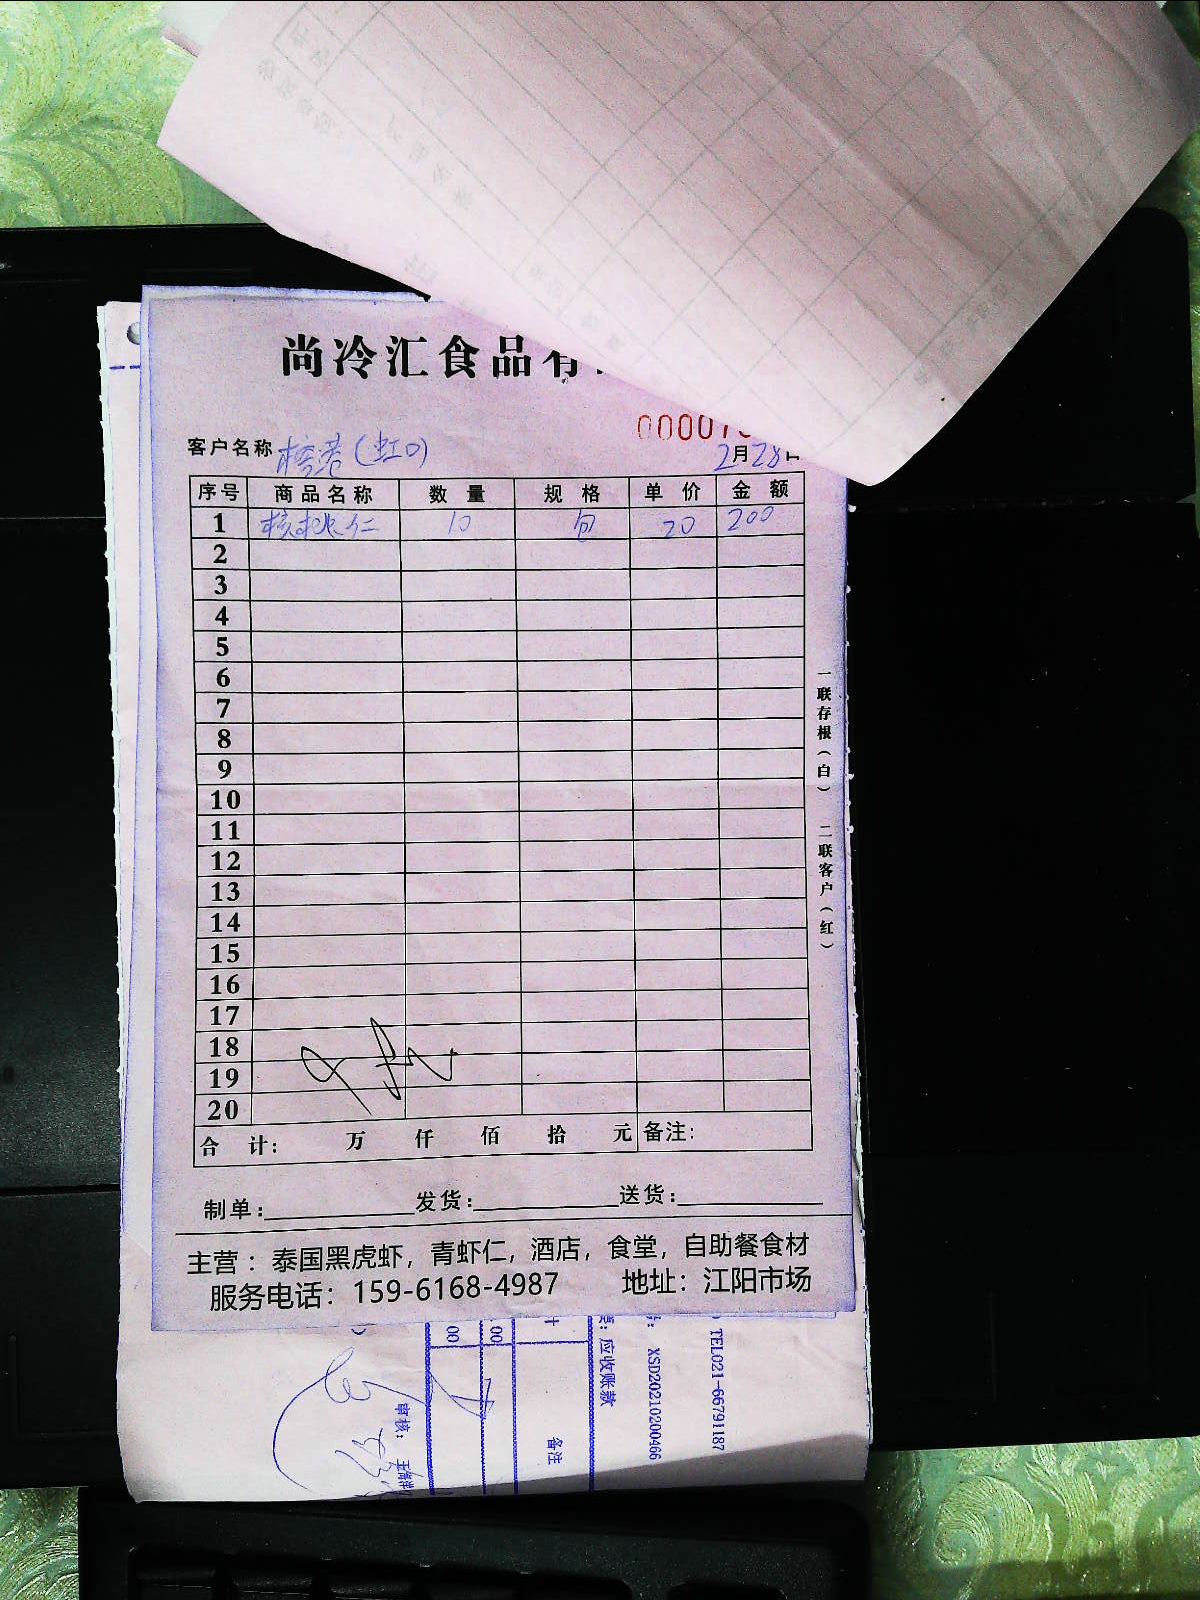 尚冷汇食品有
00001
客户名称 (虹口) 2月28日
序号 商品名称 数量 规格 单价 金额
1 核桃仁 10 包 20 200
2
3
4
5
6
7
8
9
10
11
12
13
14
15
16
17
18
19
20
合计: 万 仟 佰 拾 元 备注:
制单: 发货: 送货:
主营：泰国黑虎虾，青虾仁，酒店，食堂，自助餐食材
服务电话：159-6168-4987 地址：江阳市场
一联存根（白） 二联客户（红）
TEL021-66791187
XSD20210200466
应收账款
备注
.00
.00
审核: